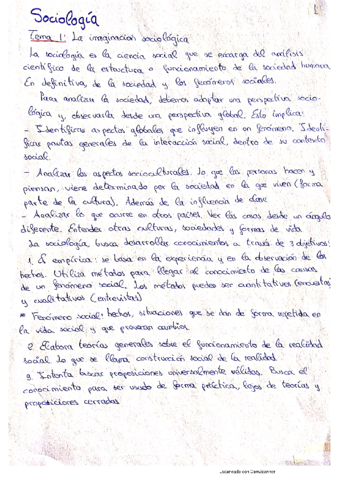 Sociología
1
Tema 1: La imaginación sociológica
La sociología es la ciencia social que se encarga del análisis
científico de la estructura o funcionamiento de la sociedad humana
En definitiva, de la sociedad y los fenómenos sociales.
Para analizar la sociedad, debemos adoptar una perspectiva socio-
lógica y observarla desde una perspectiva global. Esto implica:
- Identificar aspectos globales que influyen en un fenómeno. Identi-
ficar pautas generales de la interacción social, dentro de su contexto
social.
- Analizar los aspectos socioculturales. Lo que las personas hacen y
piensan, viene determinado por la sociedad en la que viven (forma
parte de la cultura). Además de la influencia de clase
- Analizar lo que ocurre en otros países. Ver las cosas desde un ángulo
diferente. Entender otras culturas, sociedades y formas de vida
La sociología, busca desarrollar conocimientos a través de 3 objetivos:
1. Es empírica: se basa en la experiencia, y en la observación de los
hechos. Utiliza métodos para llegar al conocimiento de las causas
de un fenómeno social. Los métodos pueden ser cuantitativos (encuestas)
y cualitativos (entrevistas)
* Fenómeno social: hechos, situaciones que se dan de forma repetida en
la vida social y que provocan cambios
2. Elabora teorías generales sobre el funcionamiento de la realidad
social. Lo que se llama construcción social de la realidad.
3. Intenta buscar proposiciones universalmente válidas. Busca el
conocimiento para ser usado de forma práctica, lejos de teorías y
proposiciones cerradas
Escaneado con CamScanner